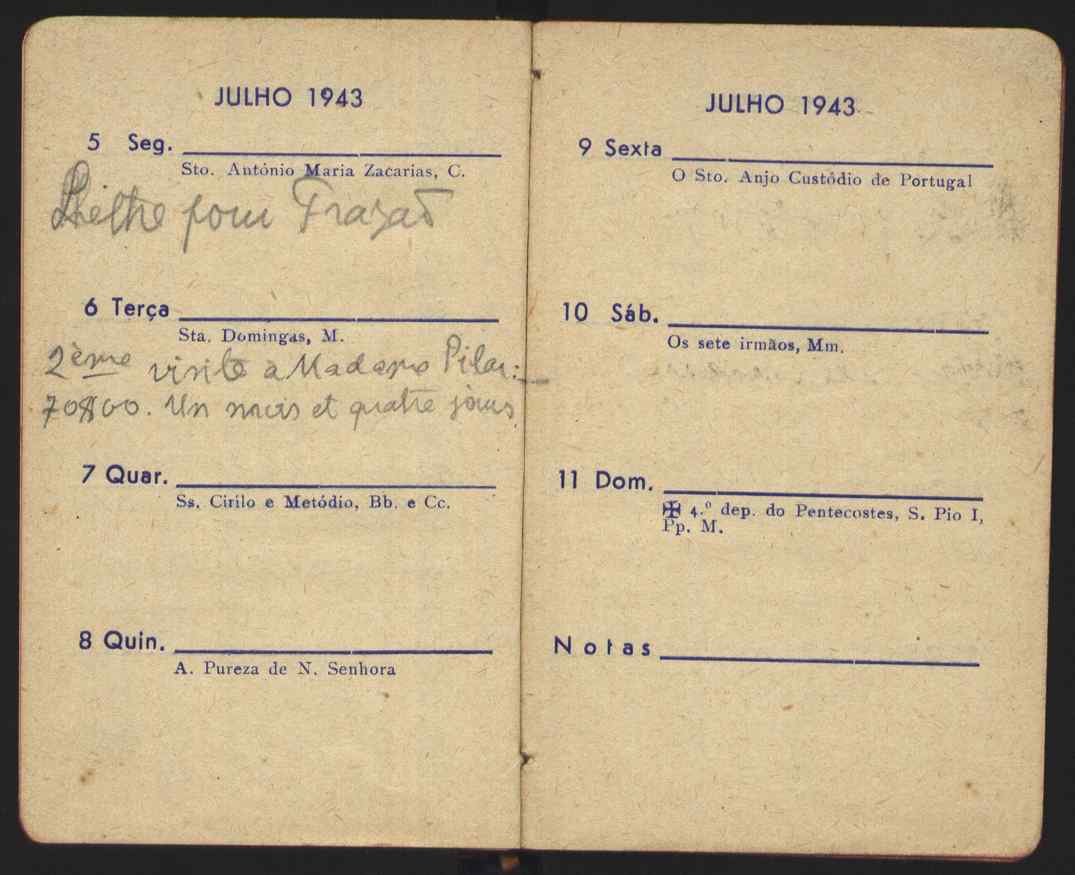 JULHO 1943
5 Seg.
Sto. António Maria Zacarias, C.
pour Frazaõ
6 Terça
Sta. Domingas, M.
2ème visite a Madame Pilar:
70$00. Un mois et quatre jours
7 Quar.
Ss. Cirilo e Metódio, Bb. e Cc.
8 Quin.
A. Pureza de N. Senhora
JULHO 1943
9 Sexta
O Sto. Anjo Custódio de Portugal
10 Sáb.
Os sete irmãos, Mm.
11 Dom.
✠ 4.º dep. do Pentecostes, S. Pio I,
Pp. M.
Notas